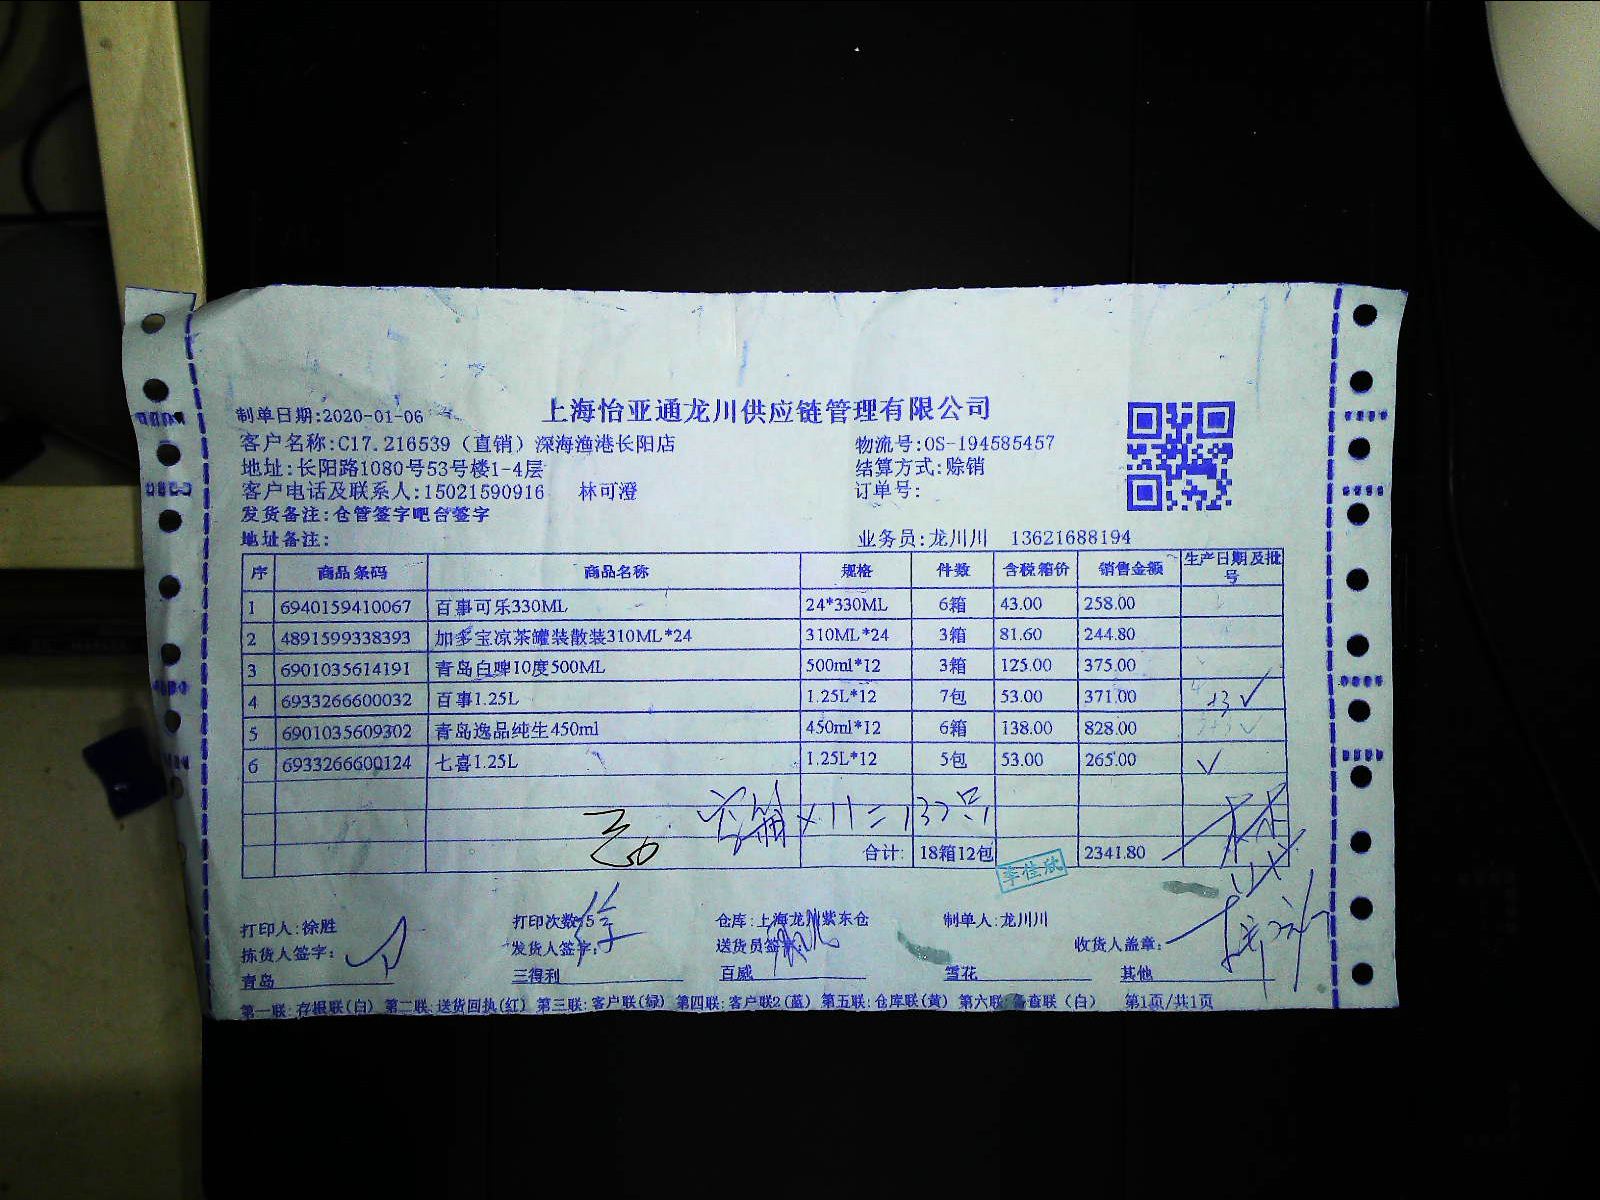 上海怡亚通龙川供应链管理有限公司
制单日期:2020-01-06
客户名称:C17.216539（直销）深海渔港长阳店 物流号:OS-194585457
地址:长阳路1080号53号楼1-4层 结算方式:赊销
客户电话及联系人:15021590916 林可澄 订单号:
发货备注:仓管签字吧台签字
地址备注: 业务员:龙川川 13621688194
序 商品条码 商品名称 规格 件数 含税箱价 销售金额 生产日期及批号
1 6940159410067 百事可乐330ML 24*330ML 6箱 43.00 258.00
2 4891599338393 加多宝凉茶罐装散装310ML*24 310ML*24 3箱 81.60 244.80
3 6901035614191 青岛白啤10度500ML 500ml*12 3箱 125.00 375.00
4 6933266600032 百事1.25L 1.25L*12 7包 53.00 371.00
5 6901035609302 青岛逸品纯生450ml 450ml*12 6箱 138.00 828.00
6 6933266600124 七喜1.25L 1.25L*12 5包 53.00 265.00
空箱×11=132只
合计: 18箱12包 2341.80
李佳欣
打印人:徐胜 打印次数:5 仓库:上海龙川紫东仓 制单人:龙川川
拣货人签字: 发货人签字: 送货员签字: 收货人盖章:
青岛 三得利 百威 雪花 其他
第一联:存根联(白) 第二联:送货回执(红) 第三联:客户联(绿) 第四联:客户联2(蓝) 第五联:仓库联(黄) 第六联:备查联（白） 第1页/共1页